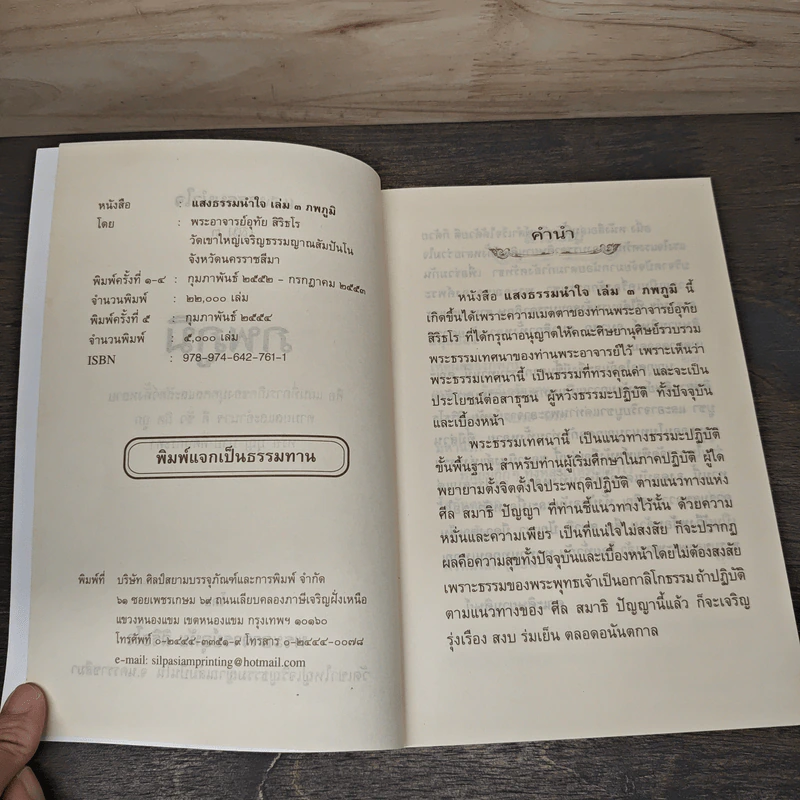 หนังสือ : แสงธรรมนำใจ เล่ม ๓ ภพภูมิ
โดย : พระอาจารย์อุทัย สิริธโร
วัดเขาใหญ่เจริญธรรมญาณสัมปันโน
จังหวัดนครราชสีมา
พิมพ์ครั้งที่ ๑-๔ : กุมภาพันธ์ ๒๕๕๒ - กรกฎาคม ๒๕๕๓
จำนวนพิมพ์ : ๒๒,๐๐๐ เล่ม
พิมพ์ครั้งที่ ๕ : กุมภาพันธ์ ๒๕๕๔
จำนวนพิมพ์ : ๕,๐๐๐ เล่ม
ISBN : 978-974-642-761-1
พิมพ์แจกเป็นธรรมทาน
พิมพ์ที่ บริษัท ศิลป์สยามบรรจุภัณฑ์และการพิมพ์ จำกัด
๖๑ ซอยเพชรเกษม ๖๙ ถนนเลียบคลองภาษีเจริญฝั่งเหนือ
แขวงหนองแขม เขตหนองแขม กรุงเทพฯ ๑๐๑๖๐
โทรศัพท์ ๐-๒๔๔๔-๓๓๕๑-๙ โทรสาร ๐-๒๔๔๔-๐๐๗๘
e-mail: silpasiamprinting@hotmail.com
คำนำ
หนังสือ แสงธรรมนำใจ เล่ม ๓ ภพภูมิ นี้
เกิดขึ้นได้เพราะความเมตตาของท่านพระอาจารย์อุทัย
สิริธโร ที่ได้กรุณาอนุญาตให้คณะศิษยานุศิษย์รวบรวม
พระธรรมเทศนาของท่านพระอาจารย์ไว้ เพราะเห็นว่า
พระธรรมเทศนานี้ เป็นธรรมที่ทรงคุณค่า และจะเป็น
ประโยชน์ต่อสาธุชน ผู้หวังธรรมะปฏิบัติ ทั้งปัจจุบัน
และเบื้องหน้า
พระธรรมเทศนานี้ เป็นแนวทางธรรมะปฏิบัติ
ขั้นพื้นฐาน สำหรับท่านผู้เริ่มศึกษาในภาคปฏิบัติ ผู้ใด
พยายามตั้งจิตตั้งใจประพฤติปฏิบัติ ตามแนวทางแห่ง
ศีล สมาธิ ปัญญา ที่ท่านชี้แนวทางไว้นั้น ด้วยความ
หมั่นและความเพียร เป็นที่แน่ใจไม่สงสัย ก็จะปรากฏ
ผลคือความสุขทั้งปัจจุบันและเบื้องหน้าโดยไม่ต้องสงสัย
เพราะธรรมของพระพุทธเจ้าเป็นอกาลิโกธรรมถ้าปฏิบัติ
ตามแนวทางของ ศีล สมาธิ ปัญญานี้แล้ว ก็จะเจริญ
รุ่งเรือง สงบ ร่มเย็น ตลอดอนันตกาล